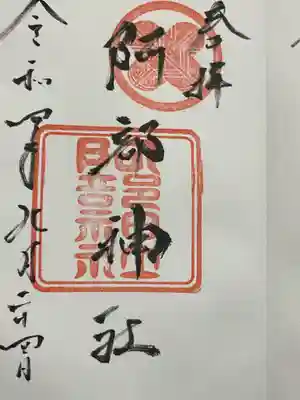 奉拝
阿部神社
令和四年九月二十四日